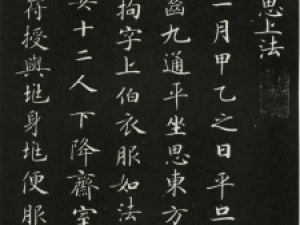 思上法
月甲乙之日平旦
齒九通平坐思東方
拘字上伯衣服如法
女十二人下降齋室
符授與垗身垗便服